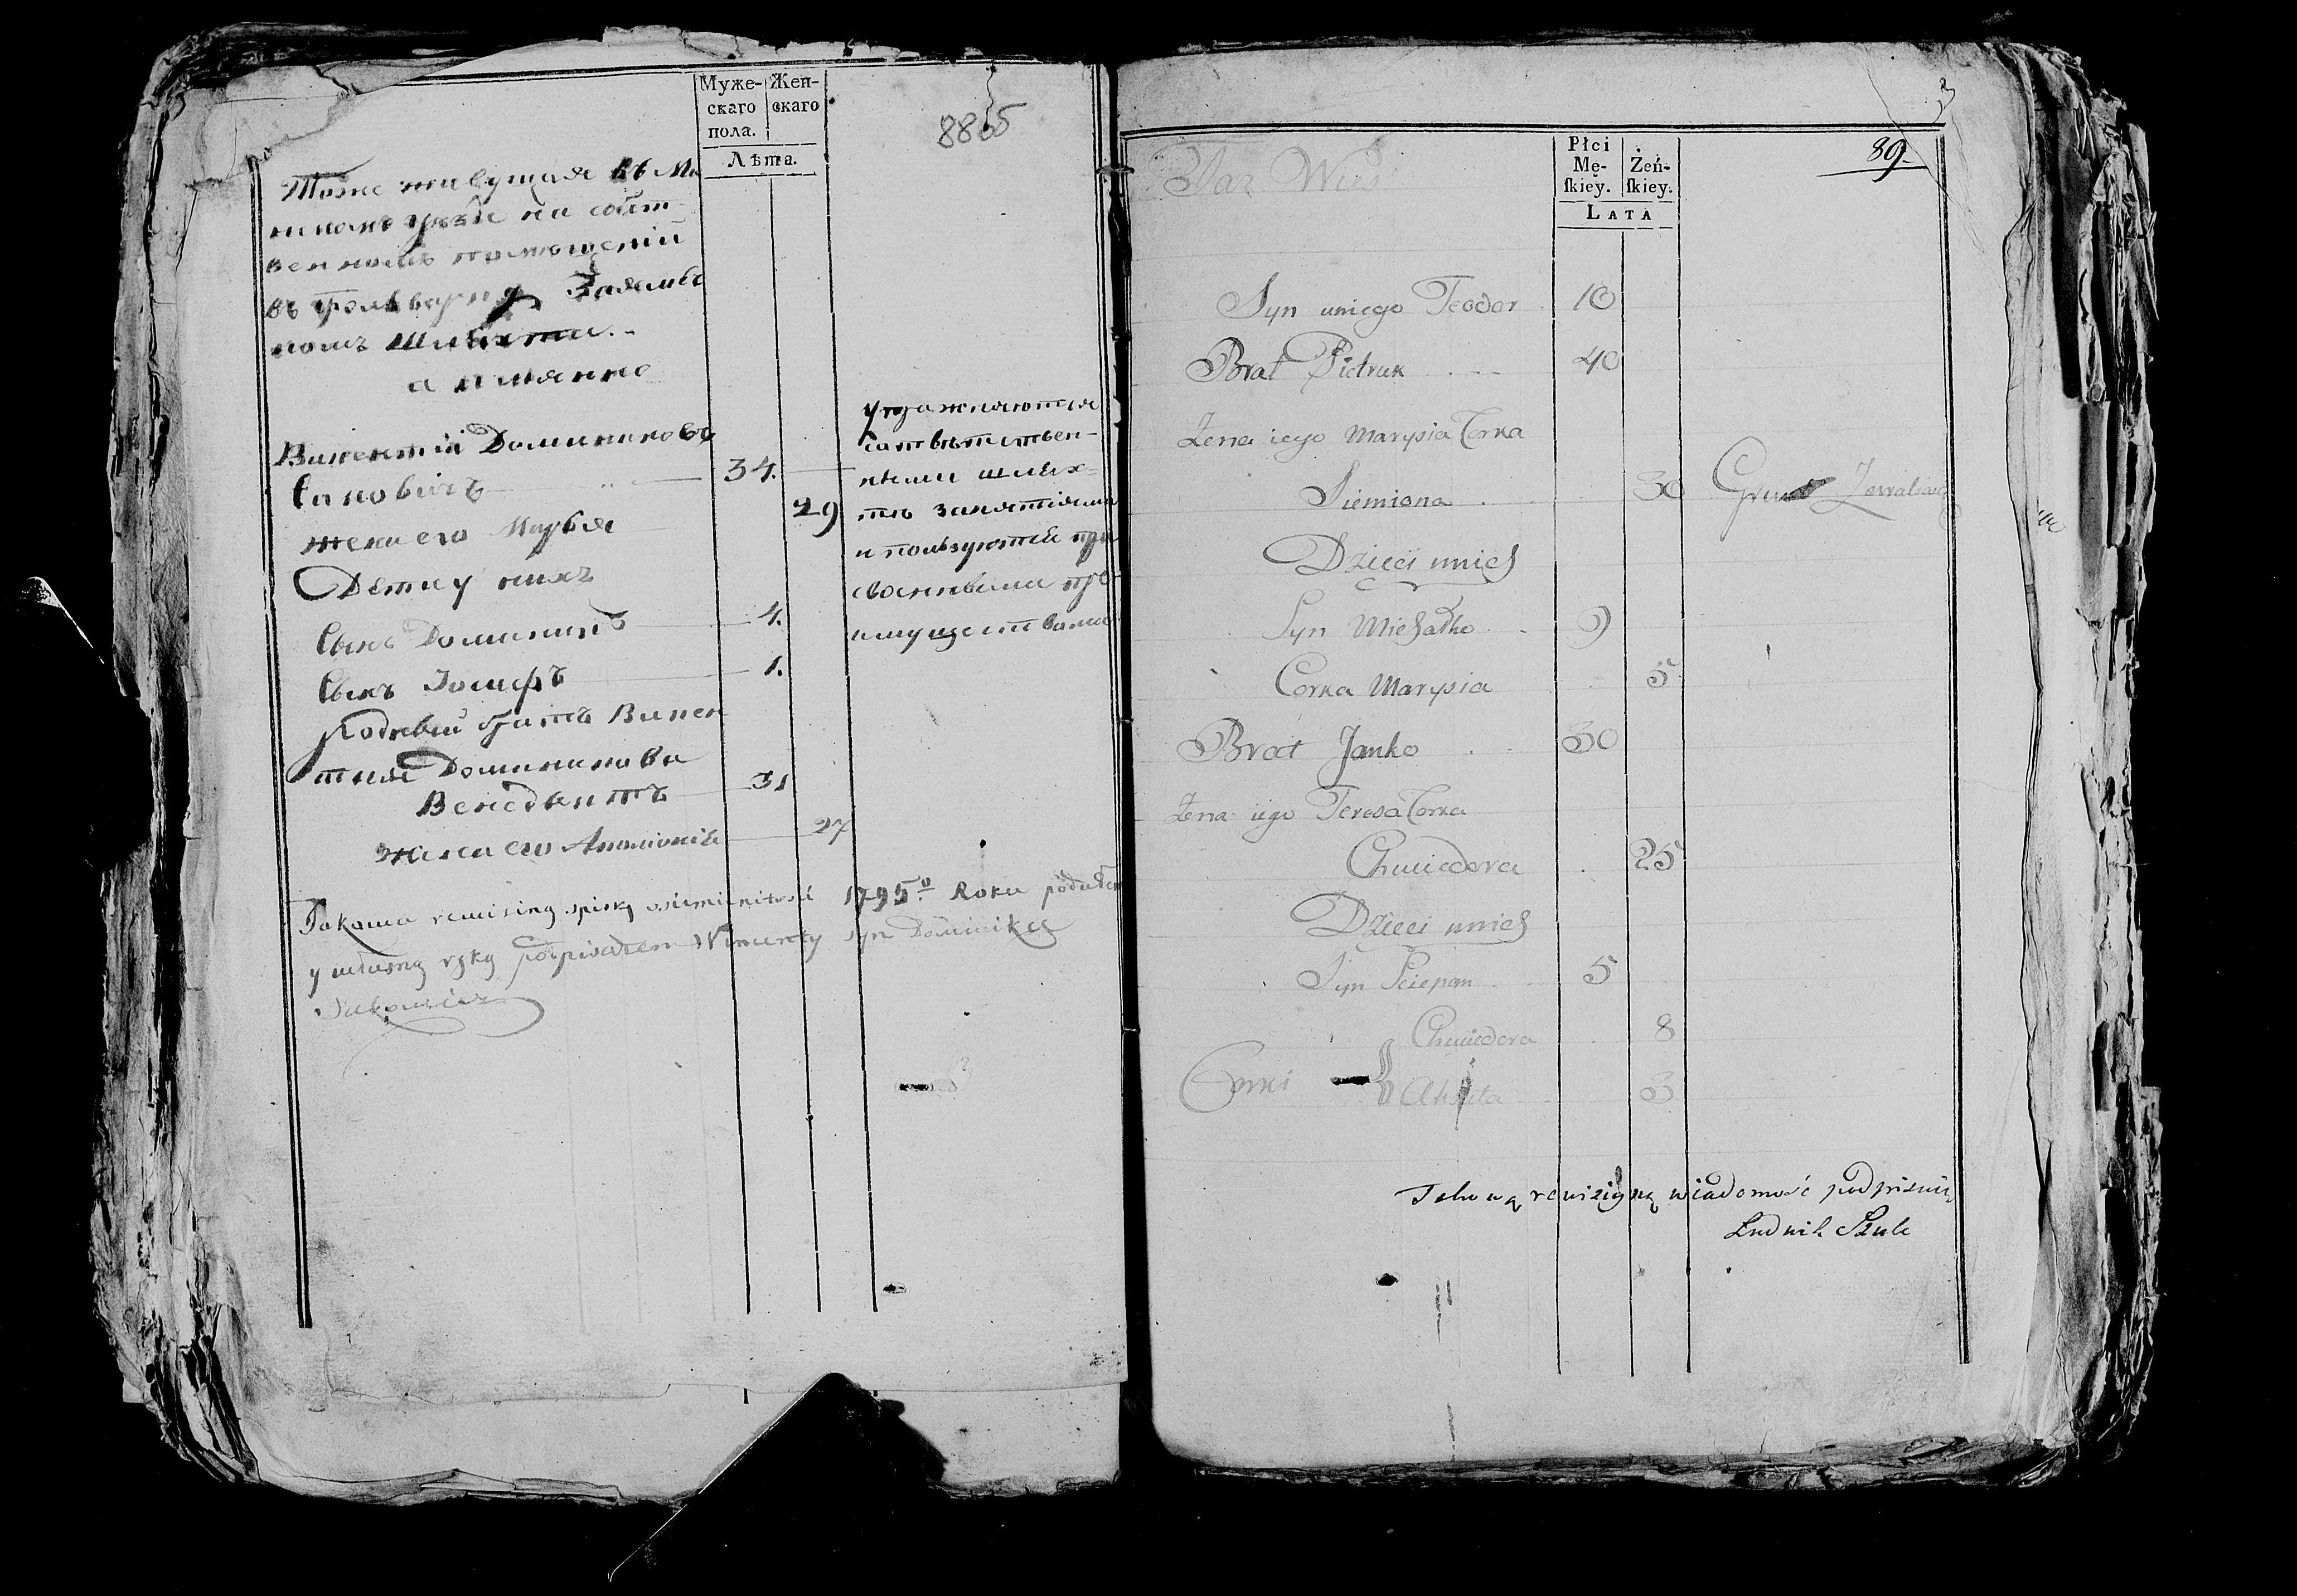 Муже-
скаго
пола.
Жен-
скаго
Лѣта.
8865
Тоже живущая въ Ми
нскомъ уездѣ на собст-
венномъ помещении
въ фольварку
а имянно
Викентій Доминиковъ
Сыновичъ 34.
жена его Марья 29
Дети у нихъ
Сынъ Доминикъ 4.
Сынъ Іосифъ 1.
Родный братъ Викен
тия Доминикова
Венедыктъ 31
жена его Аполонія 27
упражняются
сответствен-
ными шлях-
занятіями
и пользуются при
своенными пре
имуществами
Takową rewizing spiską 1795º Roku podałem
y własną ręką podpisałem Wincenty syn Dominika
89.
Taż Wieś
Płci
Mę-
ſkiey.
Żeń-
ſkiey.
LATA
Syn uniego Teodor 10
Brat Pietruk 40
Zena iego Marysia Corka
Siemiona 30
Dzieci unich
Syn Michałko 9
Corka Marysia 5
Brat Janko 30
Zena iego Teresa Corka
Chwiedora 25
Dzieci unich
Syn Sciepan 5
Chwiedora 8
Corki
3
Takową rewizyiną wiadomość podpisuię
Ludwik Szulc